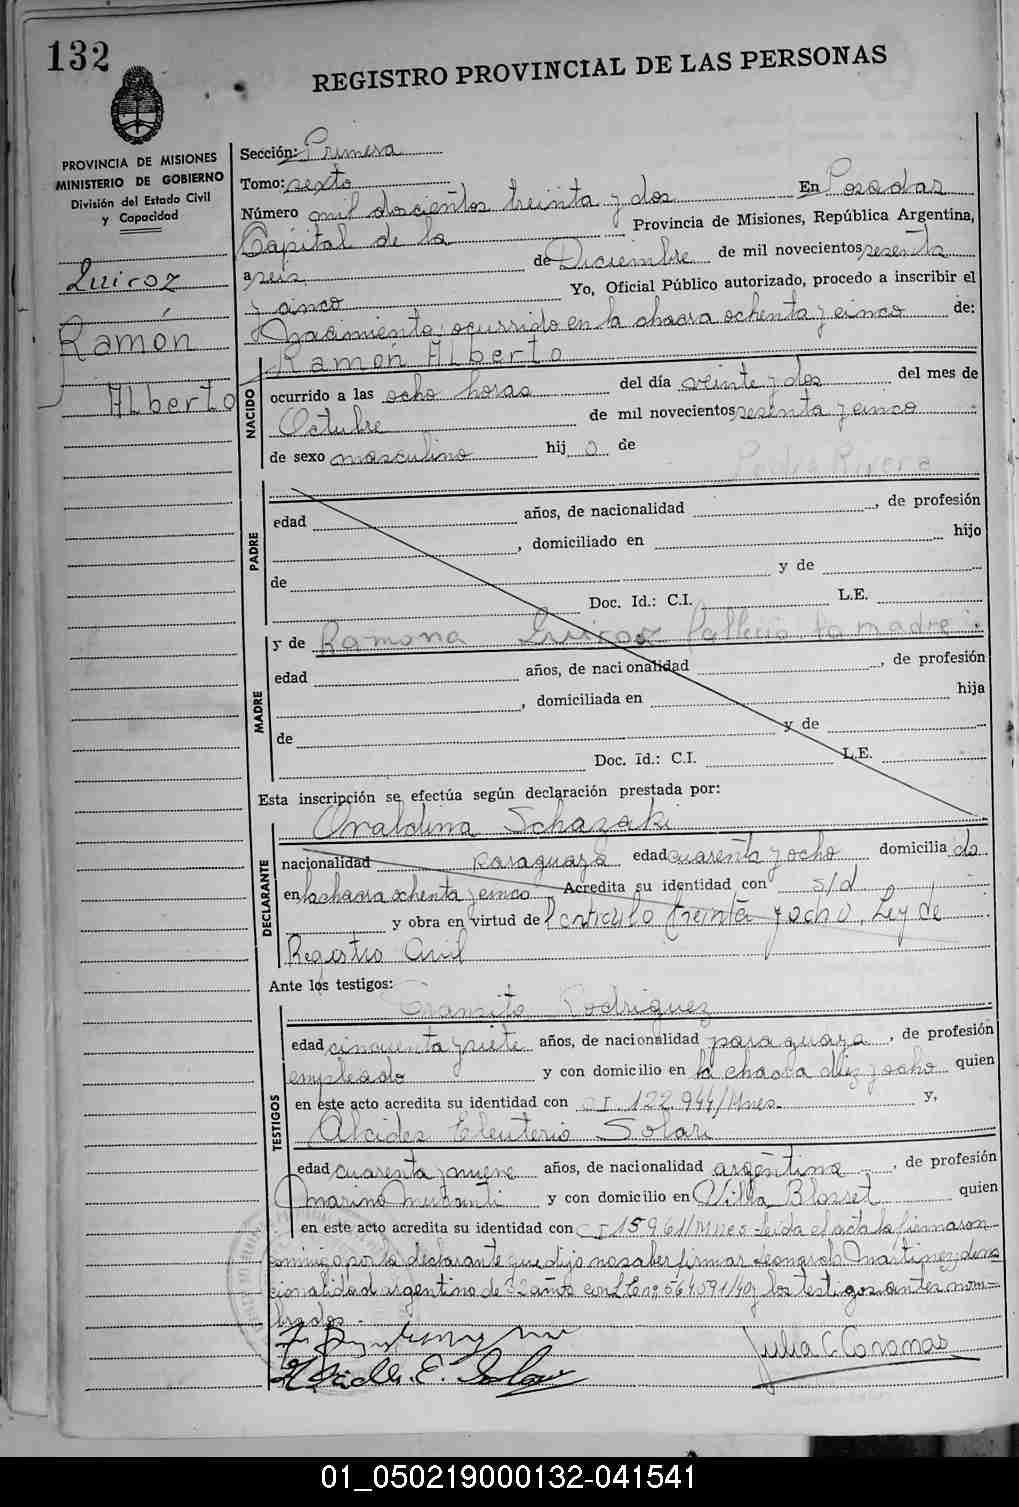 132
REGISTRO PROVINCIAL DE LAS PERSONAS
PROVINCIA DE MISIONES
MINISTERIO DE GOBIERNO
División del Estado Civil
y Capacidad
Quiroz
Ramón
Alberto
Sección: Primera
Tomo: sexto
Número mil doscientos treinta y dos En Posadas
Capital de la Provincia de Misiones, República Argentina,
a seis de Diciembre de mil novecientos sesenta
y cinco Yo, Oficial Público autorizado, procedo a inscribir el
Nacimiento ocurrido en la chacra ochenta y cinco de:
NACIDO
Ramón Alberto
ocurrido a las ocho horas del día veinte y dos del mes de
Octubre de mil novecientos sesenta y cinco
de sexo masculino hij o de
Rivero
PADRE
edad años, de nacionalidad , de profesión
, domiciliado en hijo
de y de
Doc. Id.: C.I. L.E.
MADRE
y de Ramona Quiroz la madre
edad años, de nacionalidad , de profesión
, domiciliada en hija
de y de
Doc. Id.: C.I. L.E.
Esta inscripción se efectúa según declaración prestada por:
DECLARANTE
Oraldina
nacionalidad paraguaya edad cuarenta y ocho domicilia do
en la chacra ochenta y cinco Acredita su identidad con s/d
y obra en virtud de l artículo treinta y ocho, Ley de
Registro Civil
Ante los testigos:
TESTIGOS
Transito Rodriguez
edad cincuenta y siete años, de nacionalidad paraguaya , de profesión
empleado y con domicilio en la chacra diez y ocho quien
en este acto acredita su identidad con CI 122.944/Mnes. y,
Alcides Eleuterio Solari
edad cuarenta y nueve años, de nacionalidad argentina , de profesión
marino mercanti y con domicilio en Villa Blosset quien
en este acto acredita su identidad con CI 15961/Mnes leida el acta la firmaron
conmigo por la declarante que dijo no saber firmar Leonarda Martinez de na
cionalidad argentina de 32 años con LE nº 564591/40 y los testigos antes nom-
brados.-
Julia C. Coronas
01_050219000132-041541